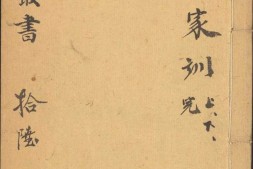 家訓 上、下、完
叢書 拾陸